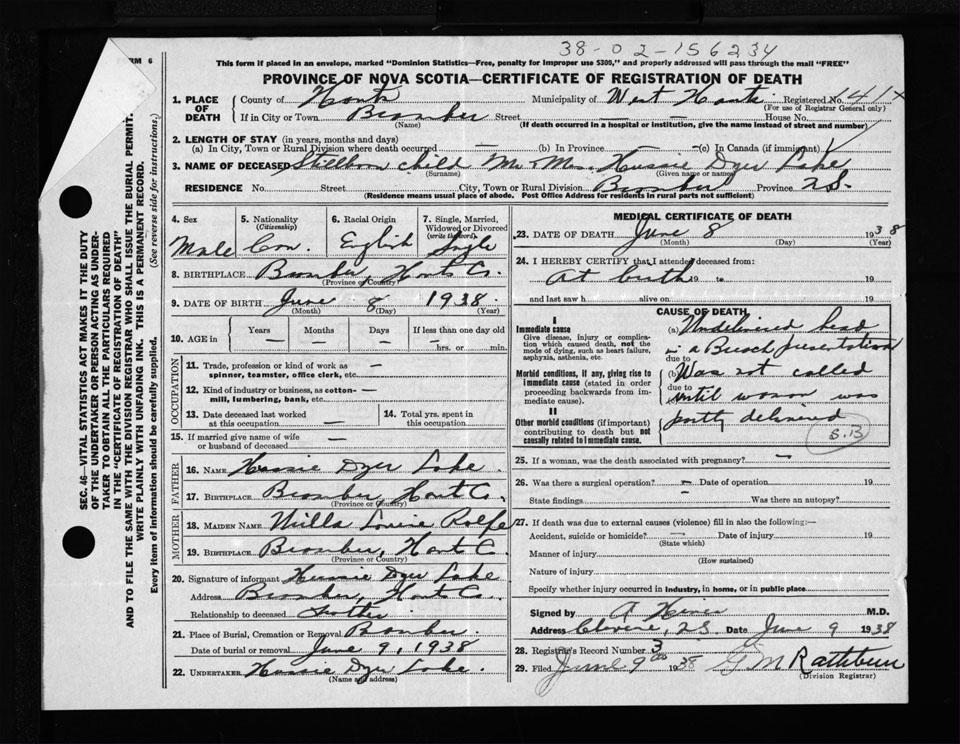 38-02-156234
RM 6
This form if placed in an envelope, marked "Dominion Statistics—Free, penalty for improper use $300," and properly addressed will pass through the mail "FREE"
PROVINCE OF NOVA SCOTIA—CERTIFICATE OF REGISTRATION OF DEATH
1. PLACE OF DEATH
County of Hants Municipality of West Hants Registered No. 141
(For use of Registrar General only)
If in City or Town Street House No.
(Name) (If death occurred in a hospital or institution, give the name instead of street and number)
2. LENGTH OF STAY (in years, months and days)
(a) In City, Town or Rural Division where death occurred — (b) In Province — (c) In Canada (if immigrant)
3. NAME OF DECEASED Stillborn child Mr & Mrs Dyer Lake
(Surname) (Given name or names)
RESIDENCE No. Street City, Town or Rural Division Province N.S.
(Residence means usual place of abode. Post Office Address for residents in rural parts not sufficient)
SEC. 46—VITAL STATISTICS ACT MAKES IT THE DUTY
OF THE UNDERTAKER OR PERSON ACTING AS UNDER-
TAKER TO OBTAIN ALL THE PARTICULARS REQUIRED
IN THE "CERTIFICATE OF REGISTRATION OF DEATH"
AND TO FILE THE SAME WITH THE DIVISION REGISTRAR WHO SHALL ISSUE THE BURIAL PERMIT.
WRITE PLAINLY WITH UNFADING INK. THIS IS A PERMANENT RECORD.
Every item of information should be carefully supplied. (See reverse side for instructions.)
4. Sex
Male
5. Nationality
(Citizenship)
Can.
6. Racial Origin
English
7. Single, Married,
Widowed or Divorced
(write the word)
Single
8. BIRTHPLACE Hants Co.
(Province or Country)
9. DATE OF BIRTH June 8 1938
(Month) (Day) (Year)
10. AGE in
Years
—
Months
—
Days
—
If less than one day old
hrs. or min.
OCCUPATION
11. Trade, profession or kind of work as
spinner, teamster, office clerk, etc. —
12. Kind of industry or business, as cotton-
mill, lumbering, bank, etc. —
13. Date deceased last worked
at this occupation —
14. Total yrs. spent in
this occupation
15. If married give name of wife
or husband of deceased —
FATHER
16. NAME Dyer Lake
17. BIRTHPLACE Hants Co.
(Province or Country)
MOTHER
18. MAIDEN NAME Louise Rolfe
19. BIRTHPLACE Hants C.
(Province or Country)
20. Signature of informant Dyer Lake
Address Hants Co.
Relationship to deceased Father
21. Place of Burial, Cremation or Removal
Date of burial or removal June 9, 1938
22. UNDERTAKER Dyer Lake.
(Name and address)
MEDICAL CERTIFICATE OF DEATH
23. DATE OF DEATH June 8 1938
(Month) (Day) (Year)
24. I HEREBY CERTIFY that I attended deceased from:
At birth 19 to 19
and last saw h alive on 19
I
Immediate cause
Give disease, injury or complica-
tion which caused death, not the
mode of dying, such as heart failure,
asphyxia, asthenia, etc.
Morbid conditions, if any, giving rise to
immediate cause (stated in order
proceeding backwards from im-
mediate cause).
II
Other morbid conditions (if important)
contributing to death but not
causally related to immediate cause.
CAUSE OF DEATH
(a) Undelivered head
in a Breech presentation
due to
(b) Was not called
due to until woman was
partly delivered
S.B
25. If a woman, was the death associated with pregnancy? —
26. Was there a surgical operation? — Date of operation 19
State findings — Was there an autopsy?
27. If death was due to external causes (violence) fill in also the following:—
Accident, suicide or homicide? — Date of injury 19
(State which)
Manner of injury
(How sustained)
Nature of injury
Specify whether injury occurred in industry, in home, or in public place
Signed by A M.D.
Address N.S. Date June 9 1938
28. Registrar's Record Number 3
29. Filed June 9th 1938 G M Rathbun
(Division Registrar)